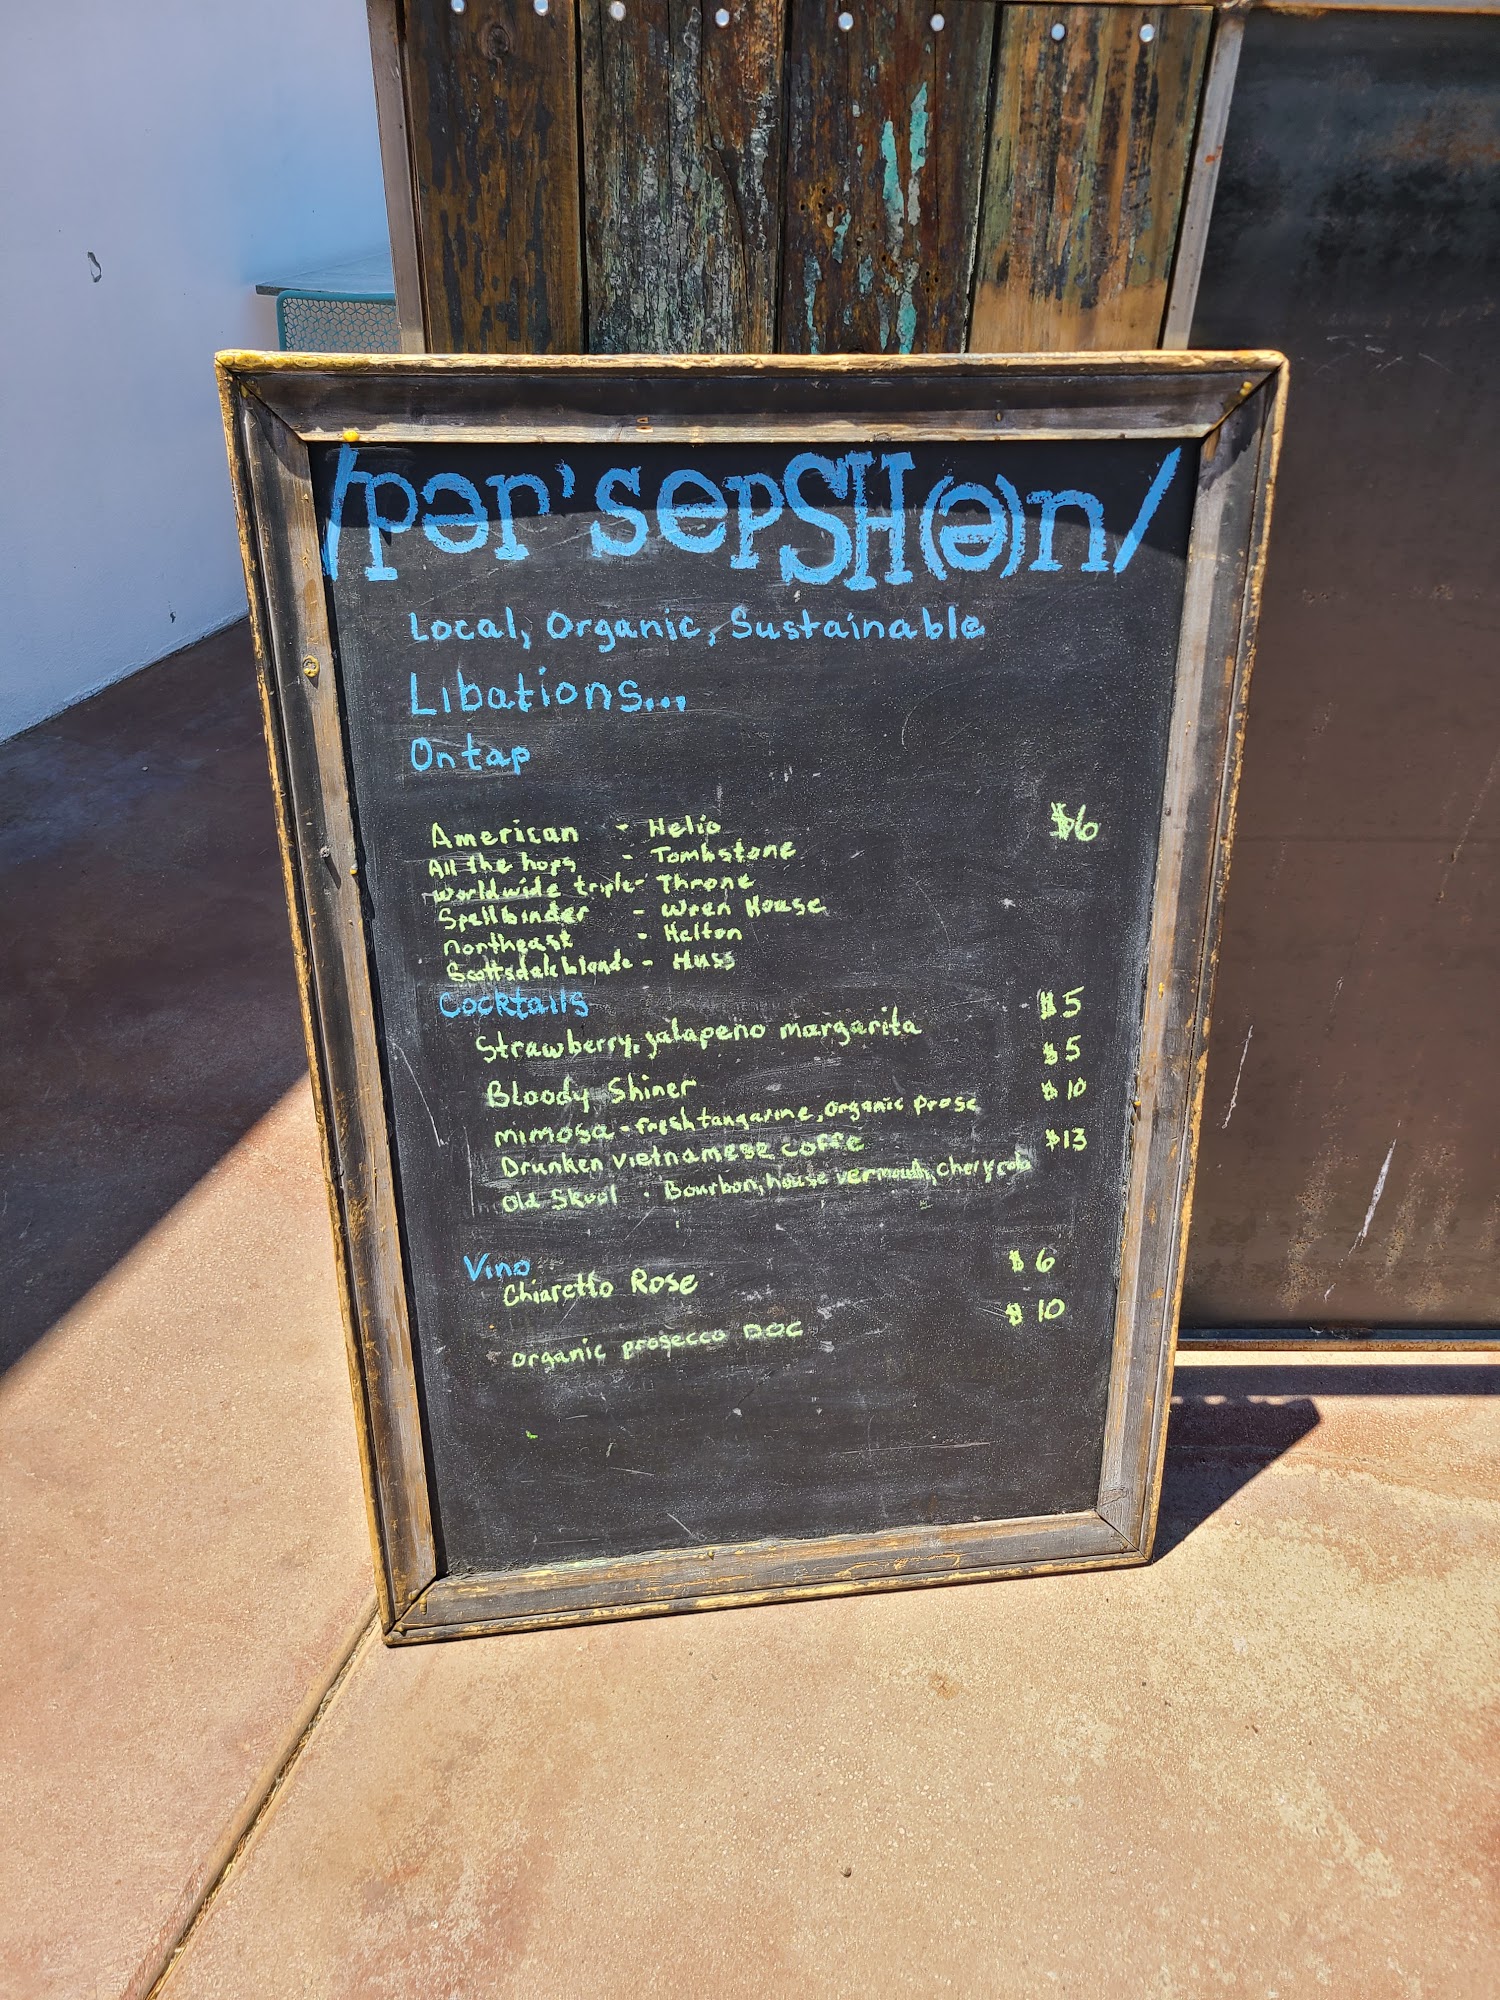 /pər'sepSH(ə)n/
Local, Organic, Sustainable
Libations...
On tap
American - Helio $6
All the hops - Tombstone
Worldwide triple - Throne
Spellbinder - Wren House
northeast - Helton
Scottsdale blonde - Huss
Cocktails
Strawberry, jalapeno margarita $5
Bloody Shiner $5
mimosa - fresh tangarine, organic prosc $10
Drunken vietnamese coffe $13
Old Skool - Bourbon, house vermouth, chery
Vino
Chiaretto Rose $6
organic prosecco DOC $10